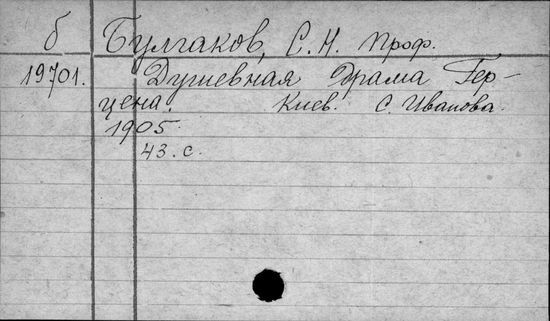 б Булгаков, С. Н. проф.
19701. Душевная драма Гер-
цена. Киев. С. Иванова.
1905.
43. с.